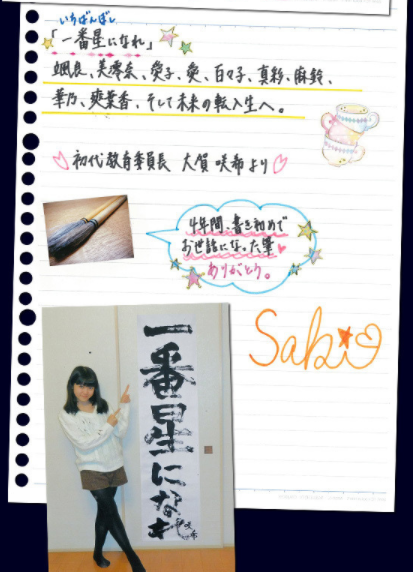 いちばんぼし
「一番星になれ」
颯良、美澪奈、愛子、愛、百々子、真彩、麻鈴、
華乃、爽葉香、そして未来の転入生へ。
初代教育委員長 大賀咲希より
4年間、書き初めで
お世話になった筆
ありがとう。
Saki
一番星になれ
咲希